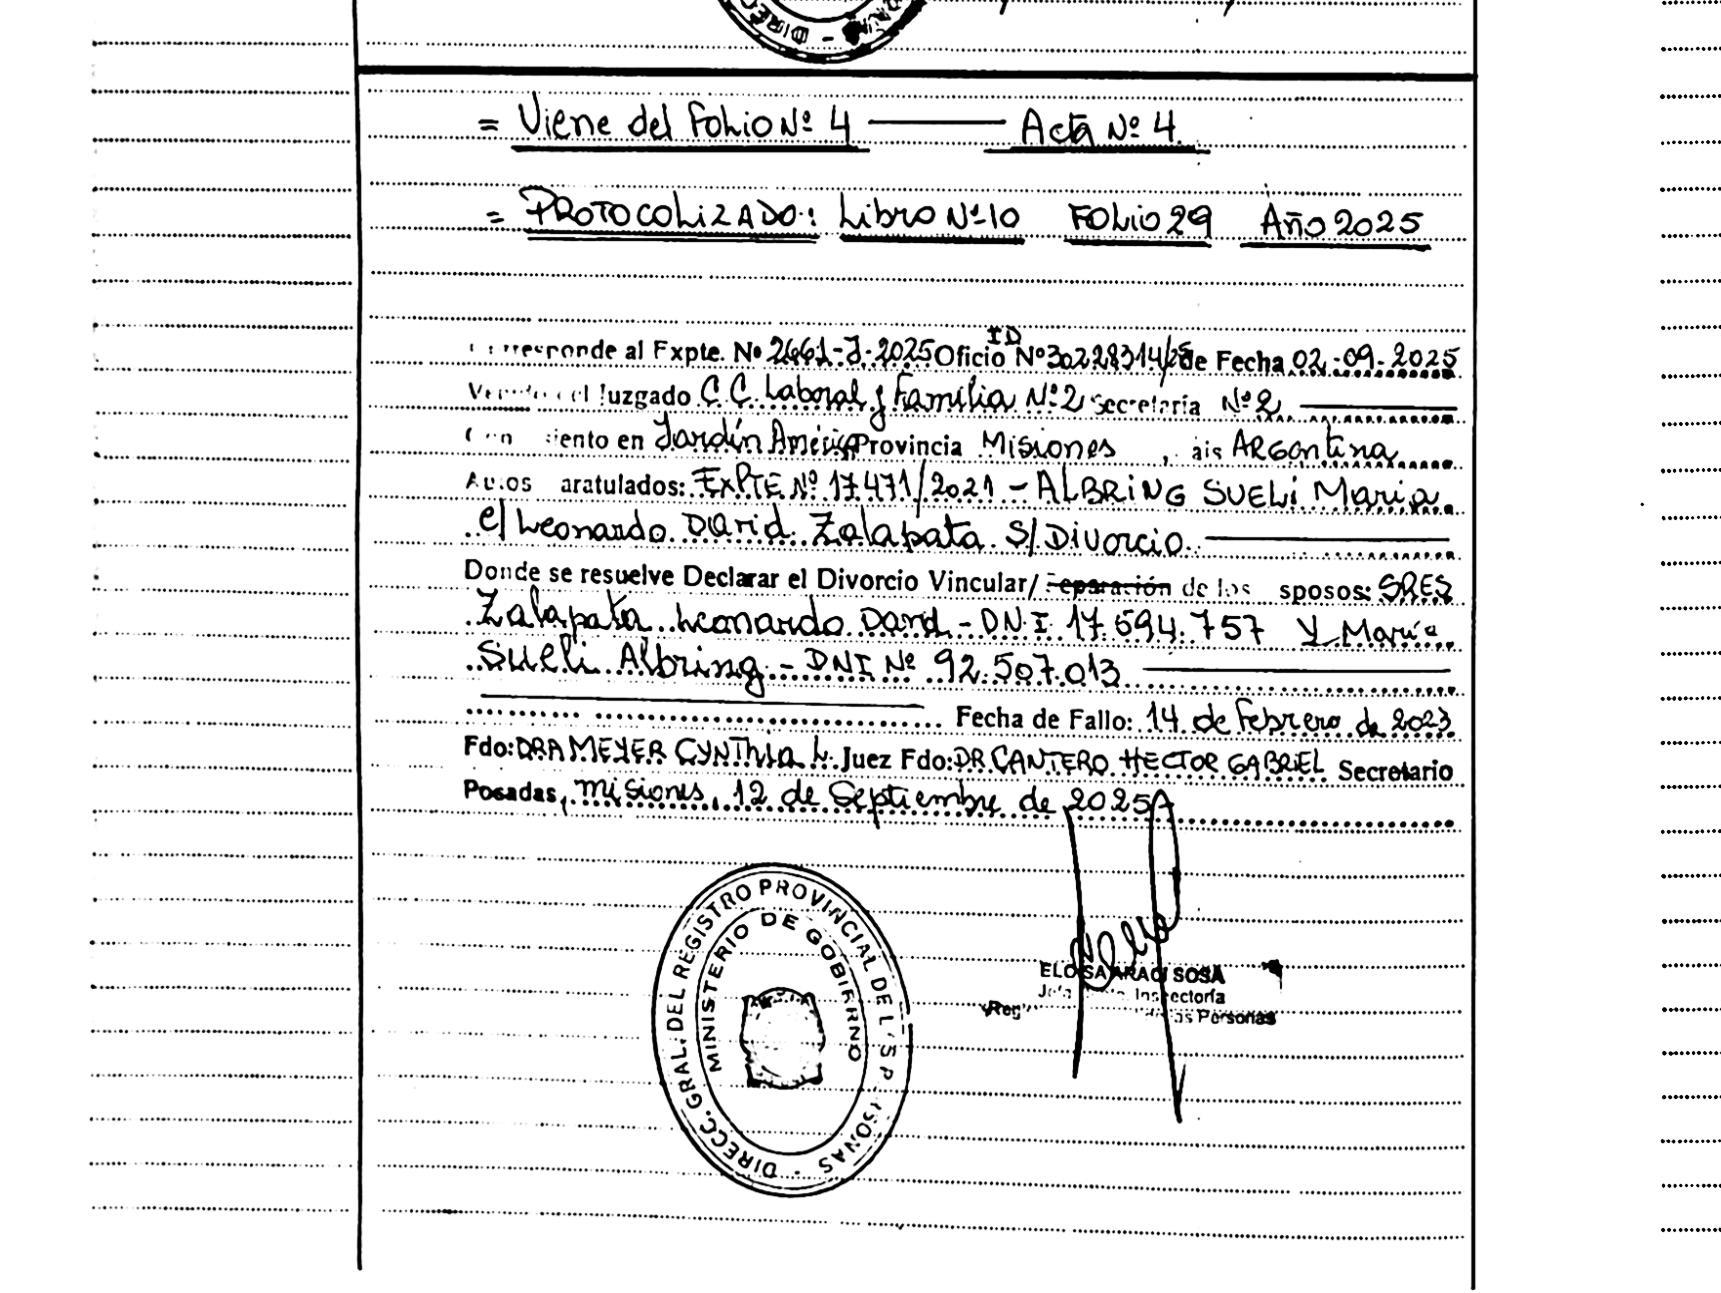 = Viene del Folio Nº 4 — Acta Nº 4.
= PROTOCOLIZADO: Libro Nº 10 FOLIO 29 Año 2025
al Expte. Nº 2661-J-2025 Oficio ID Nº 30228314/25 de Fecha 02-09-2025
el Juzgado C.C. Laboral y Familia Nº 2 Secretaria Nº 2
en Jardín América Provincia Misiones, ais ARGentina
aratulados: EXPTE Nº 17471/2021 - ALBRING SUELI Maria
c/ Leonardo David Zalapata S/ Divorcio.
Donde se resuelve Declarar el Divorcio Vincular/ Separación de los sposos: SRES
Zalapata Leonardo David - DNI 17.594.757 Y María
Sueli Albring - DNI Nº 92.507.013
Fecha de Fallo: 14 de Febrero de 2023
Fdo: DRA MEYER CYNTHIA L. Juez Fdo: DR CANTERO HECTOR GABRIEL Secretario
Posadas, Misiones, 12 de Septiembre de 2025
DIRECC. GRAL. DEL REGISTRO PROVINCIAL DE L S P SONAS
MINISTERIO DE GOBIERNO
ELOISA ARACI SOSA
Inspectoría
Personas